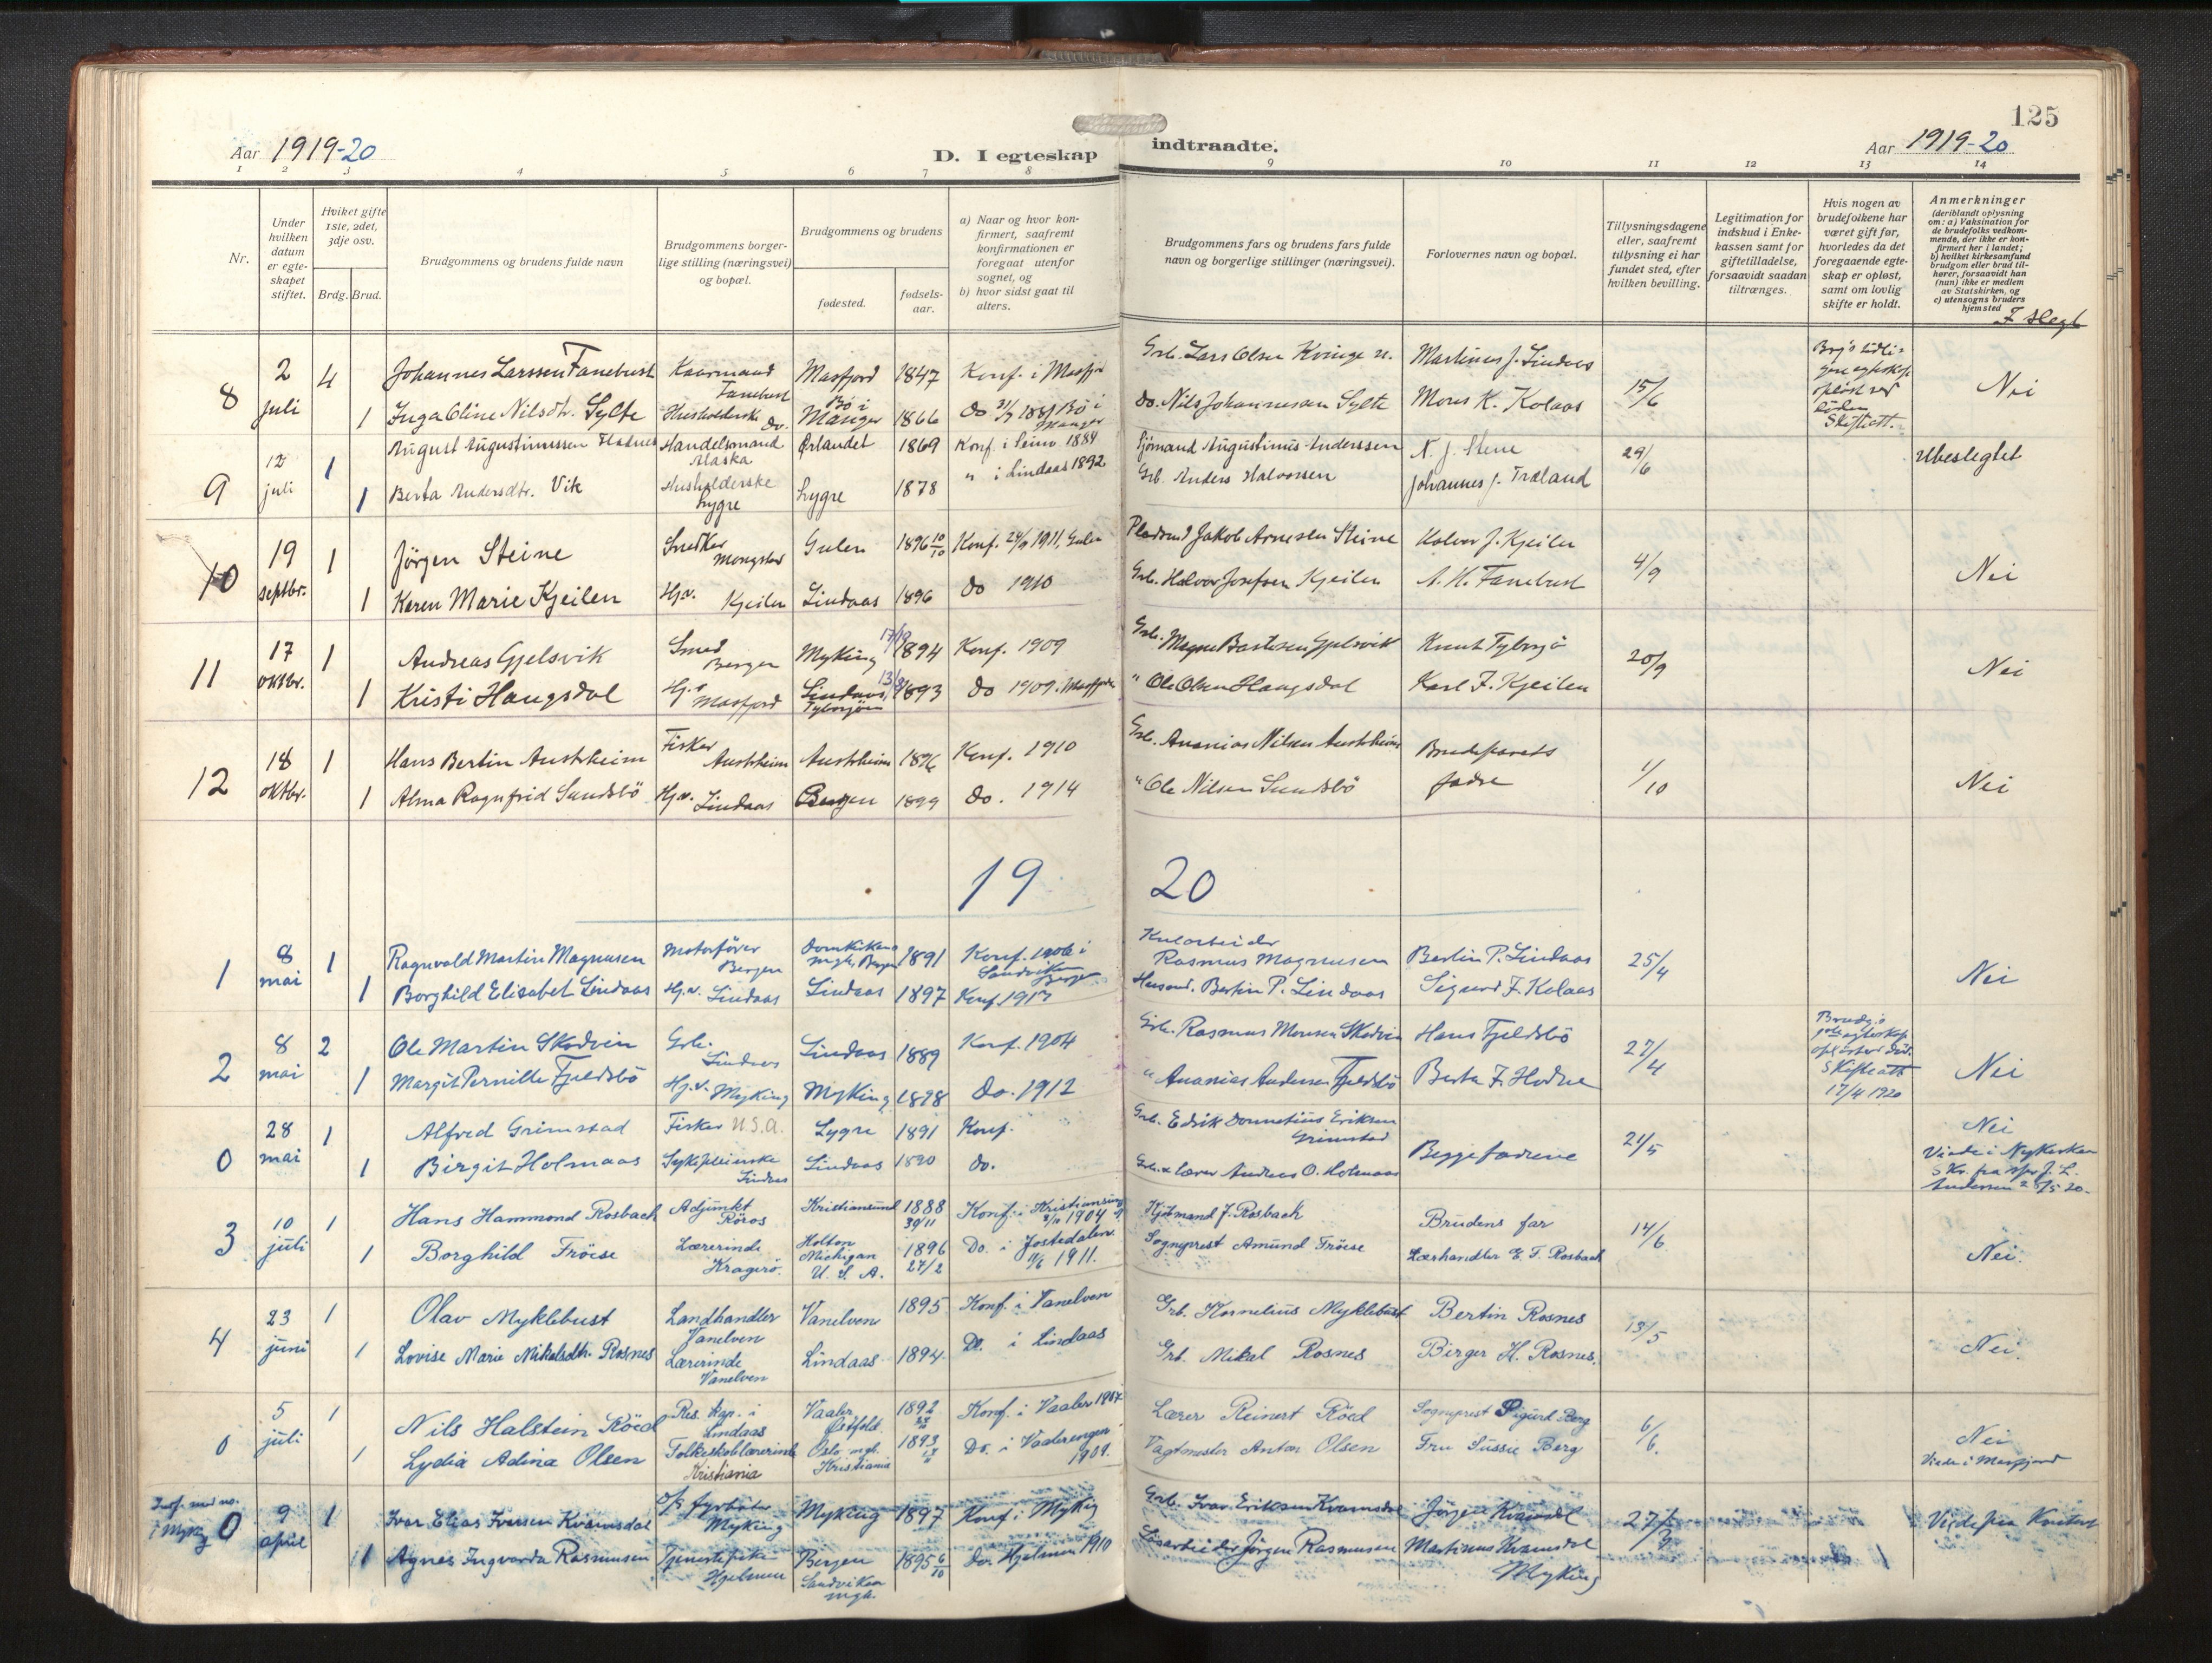 125
Aar 1919-20
D. I egteskap indtraadte.
Aar 1919-20
1 2 3 4 5 6 7 8 9 10 11 12 13 14
Nr.
Under hvilken datum er egte-skapet stiftet.
Hviket gifte 1ste, 2det, 3dje osv.
Brdg. Brud.
Brudgommens og brudens fulde navn
Brudgommens borger-lige stilling (næringsvei) og bopæl.
Brudgommens og brudens
fødested.
fødsels-aar.
a) Naar og hvor kon-firmert, saafremt konfirmationen er foregaat utenfor sognet, og
b) hvor sidst gaat til alters.
Brudgommens fars og brudens fars fulde navn og borgerlige stillinger (næringsvei).
Forlovernes navn og bopæl.
Tillysningsdagene eller, saafremt tillysning ei har fundet sted, efter hvilken bevilling.
Legitimation for indskud i Enke-kassen samt for giftetilladelse, forsaavidt saadan tiltrænges.
Hvis nogen av brudefolkene har været gift før, hvorledes da det foregaaende egte-skap er opløst, samt om lovlig skifte er holdt.
Anmerkninger
(deriblandt oplysning om: a) Vaksination for de brudefolks vedkom-mende, der ikke er kon-firmert her i landet; b) hvilket kirkesamfund brudgom eller brud til-hører, forsaavidt han (hun) ikke er medlem av Statskirken, og c) utensogns bruders hjemsted
8 2 juli 4 Johannes Larssen Fanebust Kaarmand Fanebust Masfjord 1847 Konf. i Masfj. Grb. Lars Olsen Kvinge Martinus J. Lindaas 15/6 Nei
1 Inga Oline Nilsdtr. Sylte Husholderske do. Bø i Manger 1866 do Bø i Manger do. Nils Johannessen Sylte Mons K. Kolaas
9 12 juli 1 August Augustinussen Handelsmand Alaska Ørlandet 1869 Konf. i Seim 1884 Sjømand Augustinus Anderssen N. J. Stene 29/6 Ubeslegtet
1 Berta Andersdtr. Vik Husholderske Lygre Lygre 1878 " i Lindaas 1892 Grb. Anders Halvorsen Johannes J. Træland
10 19 septbr. 1 Jörgen Steine Snedker Mongstad Gulen 1896 10/10 Konf. 24/9 1911, Gulen Jakob Arnesen Steine Halvor J. Kjeilen 4/9 Nei
1 Karen Marie Kjeilen Hjv. Kjeilen Lindaas 1896 do 1910 Grb. Halvor Josefsen Kjeilen A. H. Fanebust
11 17 oktbr. 1 Andreas Gjelsvik Smed Bergen Myking 1894 Konf. 1909 Grb. Magne Bastesen Gjelsvik Knut Tyborjö 20/9 Nei
1 Kristi Haugsdal Hj.v. Masfjord Lindaas 1893 do 1909. Masfjorden " Ole Olsen Haugsdal Karl F. Kjeilen
12 18 oktbr. 1 Hans Bertin Austrheim Fisker Austrheim Austrheim 1896 Konf. 1910 Grb. Ananias Nilsen Austrheim Brudeparets fædre 1/10 Nei
1 Alma Ragnfrid Sundsbö Hjv. Lindaas Bergen 1899 do. 1914 " Ole Nilsen Sundsbö
19 20
1 8 mai 1 Ragnvald Martin Magnusen Motorförer Bergen Domkirkens mgh. Bergen 1891 Konf. 1906 i Sandviken Bergen Rasmus Magnusen Bertin P. Lindaas 25/4 Nei
1 Borghild Elisabet Lindaas Hj.v. Lindaas Lindaas 1897 Konf. Husmd. Bertin P. Lindaas Sigurd F. Kolaas
2 8 mai 2 Ole Martin Skodvin Grb. Lindaas Lindaas 1889 Konf. 1904 Grb. Rasmus Monsen Skodvin Hans Fjeldsbö 27/4 17/4 1920 Nei
1 Margit Pernille Fjeldsbö Hj.v. Myking Myking 1898 Do. 1912 " Ananias Andersen Fjeldsbö Berta F. Hodne
0 28 mai 1 Alfred Grimstad Fisker U.S.A. Lygre 1891 Konf. Grb. Edvik Eriksen Grimstad Begge fædrene 21/5 Nei
1 Birgit Holmaas Sykepleierske Lindaas Lindaas 1890 do. Grb. & lærer Andreas O. Holmaas Viede i Nykirken
3 10 juli 1 Hans Hammond Rosbach Adjunkt Röros Kristiansund 1888 30/11 Konf. i Kristiansund 1904 Kjöbmand J. Rosbach Brudens far 14/6 Nei.
1 Borghild Tröese Lærerinde Kragerö. Holton Michigan U. S. A. 1896 27/2 Do. i Jostedalen 1911. Sogneprest Amund Tröese Lærhandler E. T. Rosbach
4 23 juni 1 Olav Myklebust Landhandler Vanelven Vanelven 1895 Konf. i Vanelven Grb. Kornelius Myklebust Bertin Rosnes 13/5 Nei.
1 Lovise Marie Nikolsdtr. Rosnes Lærerinde Vanelven Lindaas 1894. Do. i Lindaas Grb. Mikal Rosnes Birger H. Rosnes.
0 5 juli 1 Nils Halstein Röed Res. kap. i Lindaas Vaaler Østfold 1892 Konf. i Vaaler 1907 Lærer Reinert Röed Sogneprest Sigurd Berg 6/6. Nei
1 Lydia Adina Olsen Folkeskolelærerinde Kristiania Oslo mgl. Kristiania 1893 Do. i Vaalerengen 1909. Vagtmester Anton Olsen Fru Sussie Berg Viede i Masfjord
0 9 april 1 Ivar Elias Iversen Kvamsdal Myking Myking 1897 Konf. i Myking Grb. Ivar Eriksen Kvamsdal Jörgen Kvamsdal
1 Agnes Ingvarda Rasmussen Tjenestepike Hjelmen Bergen Sandviken mgh. 1895 6/10 do. Hjelmen 1910 Jörgen Rasmussen Martinus Kvamsdal Myking